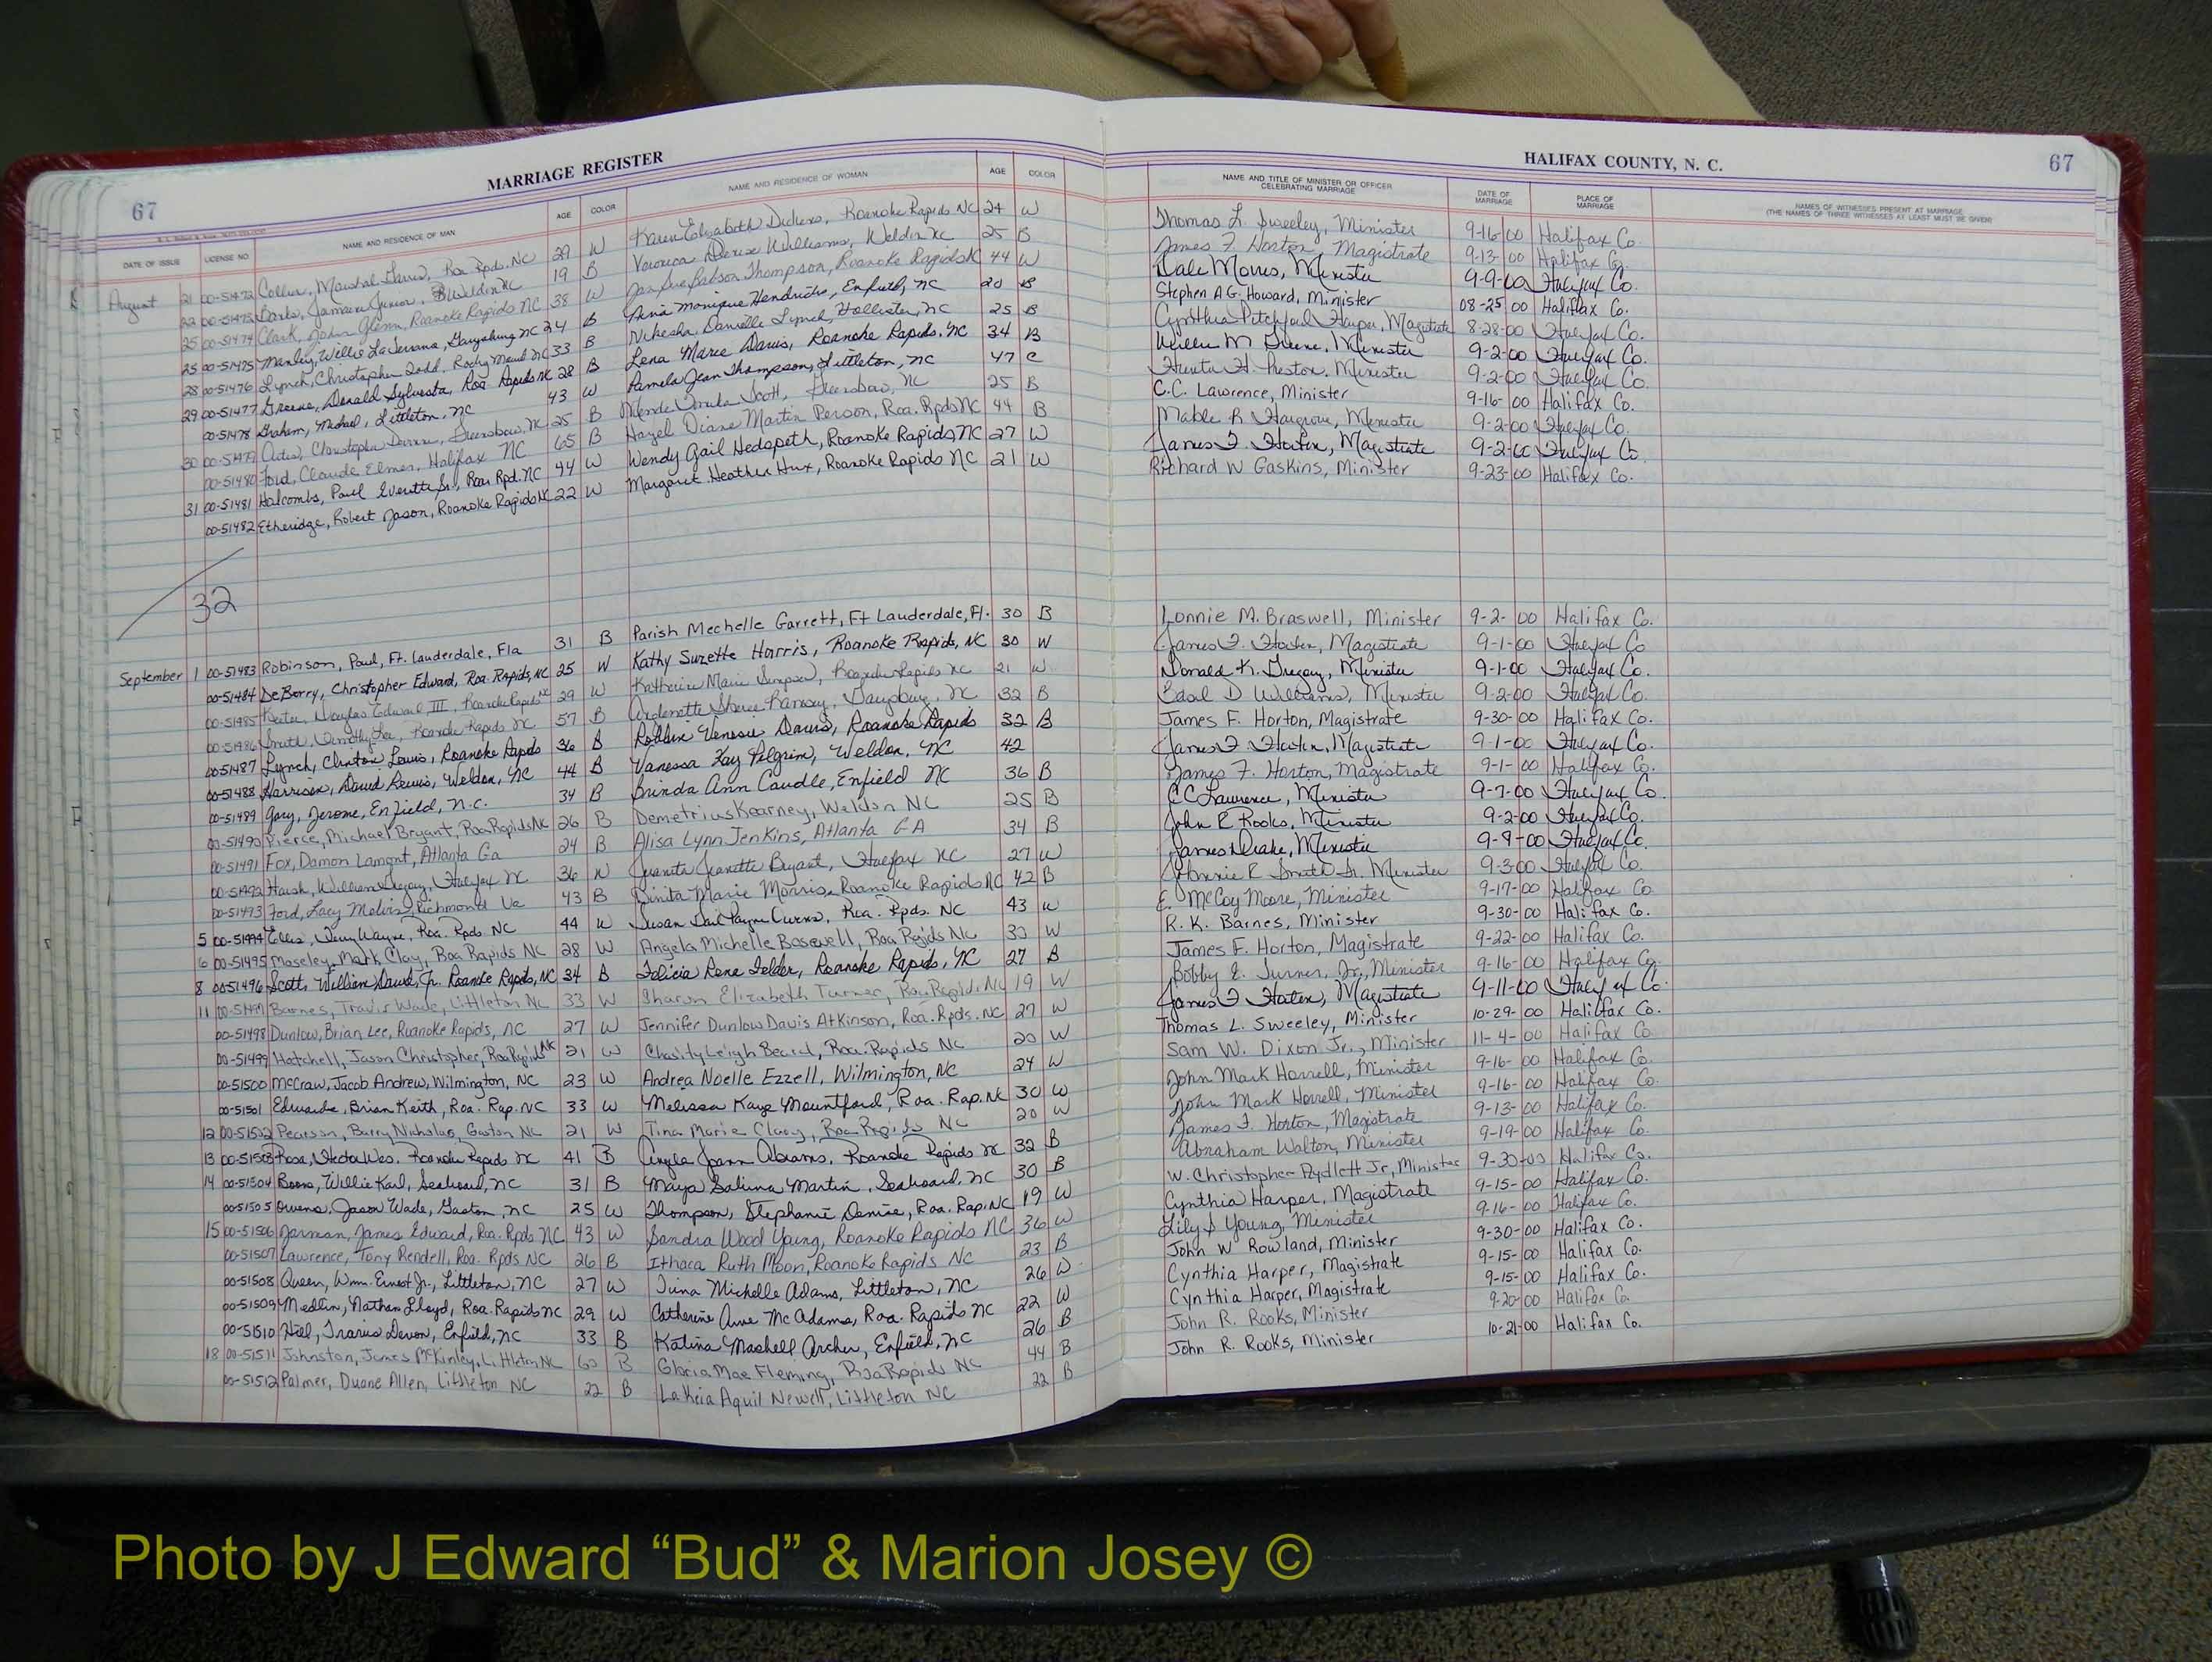 MARRIAGE REGISTER
HALIFAX COUNTY, N. C.
67
67
DATE OF ISSUE LICENSE NO. NAME AND RESIDENCE OF MAN AGE COLOR NAME AND RESIDENCE OF WOMAN AGE COLOR NAME AND TITLE OF MINISTER OR OFFICER CELEBRATING MARRIAGE DATE OF MARRIAGE PLACE OF MARRIAGE NAMES OF WITNESSES PRESENT AT MARRIAGE (THE NAMES OF THREE WITNESSES AT LEAST MUST BE GIVEN)
August 21 00-51472 Roa Rpds. NC 29 W Karen Elizabeth Dickens, Roanoke Rapids NC 24 W Thomas L. Sweeley, Minister 9-16-00 Halifax Co.
22 00-51473 19 B Veronica Denise Williams, Weldon NC 25 B James F. Horton, Magistrate 9-13-00 Halifax Co.
25 00-51474 Clark, John Glenn, Roanoke Rapids NC 38 W Thompson, Roanoke Rapids NC 44 W Dale Minister 9-9-00 Halifax Co.
25 00-51475 Manley, Willie Garysburg NC 24 B Monique Hendricks, Enfield, NC 20 B Stephen A G. Howard, Minister 08-25-00 Halifax Co.
28 00-51476 Lynch, Christopher Todd, Rocky Mount NC 33 B Nikesha Danielle Lynch, Hollister, NC 25 B Cynthia Pitchford Harper, Magistrate 8-28-00 Halifax Co.
29 00-51477 Greene, Donald Sylvester, Roa Rapids NC 28 B Lena Maree Davis, Roanoke Rapids, NC 34 B Willie M Greene, Minister 9-2-00 Halifax Co.
00-51478 Graham, Michael, Littleton, NC 43 W Pamela Jean Thompson, Littleton, NC 47 C H. Preston, Minister 9-2-00 Halifax Co.
30 00-51479 Christopher Greensboro, NC 25 B Scott, Greensboro, NC 25 B C.C. Lawrence, Minister 9-16-00 Halifax Co.
00-51480 Ford, Claude Elmer, Halifax NC 65 B Hazel Diane Martin Person, Roa. Rpds NC 44 B Mable R Hargrove, Minister 9-2-00 Halifax Co.
31 00-51481 Halcombs, Paul Everette Sr., Roa Rpd. NC 44 W Wendy Gail Hedspeth, Roanoke Rapids NC 27 W James F. Horton, Magistrate 9-2-00 Halifax Co.
00-51482 Etheridge, Robert Jason, Roanoke Rapids NC 22 W Margaret Heather Hux, Roanoke Rapids NC 21 W Richard W Gaskins, Minister 9-23-00 Halifax Co.
32
September 1 00-51483 Robinson, Paul, Ft. Lauderdale, Fla 31 B Parish Mechelle Garrett, Ft Lauderdale, Fl. 30 B Lonnie M. Braswell, Minister 9-2-00 Halifax Co.
00-51484 DeBerry, Christopher Edward, Roa. Rapids, NC 25 W Kathy Suzette Harris, Roanoke Rapids, NC 30 W James F. Horton, Magistrate 9-1-00 Halifax Co
00-51485 Douglas Edward III, Roanoke Rapids NC 29 W Katherine Marie Simpson, Roanoke Rapids NC 21 W Donald K. Minister 9-1-00 Halifax Co.
00-51486 Smith, Timothy Lee, Roanoke Rapids NC 57 B Ramsey, Garysburg, NC 32 B D Williams, Minister 9-2-00 Halifax Co.
00-51487 Lynch, Clinton Louis, Roanoke Rapids 36 B Robbin Denise Davis, Roanoke Rapids 32 B James F. Horton, Magistrate 9-30-00 Halifax Co.
00-51488 Harrison, David Lewis, Weldon, NC 44 B Vanessa Kay Pilgrim, Weldon, NC 42 James F. Horton, Magistrate 9-1-00 Halifax Co.
00-51489 Gary, Jerome, Enfield, N.C. 34 B Brinda Ann Caudle, Enfield NC 36 B James F. Horton, Magistrate 9-1-00 Halifax Co.
00-51490 Pierce, Michael Bryant, Roa Rapids NC 26 B Demetrius Kearney, Weldon NC 25 B C C Lawrence, Minister 9-7-00 Halifax Co.
00-51491 Fox, Damon Lamont, Atlanta Ga 24 B Alisa Lynn Jenkins, Atlanta GA 34 B John R Rooks, Minister 9-2-00 Halifax Co.
00-51492 William Gregory, Halifax NC 36 W Juanita Jeanette Bryant, Halifax NC 27 W James Drake, Minister 9-9-00 Halifax Co.
00-51493 Ford, Lacy Melvin, Richmond Va 43 B Binita Marie Morris, Roanoke Rapids NC 42 B R Smith Sr. Minister 9-3-00 Halifax Co.
5 00-51494 Ellis, Terry Wayne, Roa. Rpds. NC 44 W Susan Gail Payne Owens, Roa. Rpds. NC 43 W E. McCoy Moore, Minister 9-17-00 Halifax Co
6 00-51495 Moseley, Mark Clay, Roa Rapids NC 28 W Angela Michelle Bosewell, Roa Rapids NC 30 W R. K. Barnes, Minister 9-30-00 Halifax Co.
8 00-51496 Scott, William David, Jr. Roanoke Rapids, NC 34 B Felicia Rena Felder, Roanoke Rapids, NC 27 B James F. Horton, Magistrate 9-22-00 Halifax Co.
11 00-51497 Barnes, Travis Wade, Littleton NC 33 W Sharon Elizabeth Turner, Roa Rapids NC 19 W Bobby E. Turner, Jr., Minister 9-16-00 Halifax Co.
00-51498 Dunlow, Brian Lee, Roanoke Rapids, NC 27 W Jennifer Dunlow Davis Atkinson, Roa. Rpds. NC 27 W James F Horton, Magistrate 9-11-00 Halifax Co.
00-51499 Hatchell, Jason Christopher, Roa Rapids NC 21 W Chasity Leigh Beard, Roa. Rapids NC 20 W Thomas L. Sweeley, Minister 10-29-00 Halifax Co.
00-51500 McCraw, Jacob Andrew, Wilmington, NC 23 W Andrea Noelle Ezzell, Wilmington, NC 24 W Sam W. Dixon Jr., Minister 11-4-00 Halifax Co
00-51501 Edwards, Brian Keith, Roa. Rap. NC 33 W Melissa Kaye Mountford, Roa. Rap. NC 30 W John Mark Harrell, Minister 9-16-00 Halifax Co.
12 00-51502 Pearson, Barry Nicholas, Gaston NC 21 W Tina Marie Clary, Roa Rapids NC 20 W John Mark Harrell, Minister 9-16-00 Halifax Co.
13 00-51503 Roanoke Rapids NC 41 B Joann Abrams, Roanoke Rapids NC 32 B James F. Horton, Magistrate 9-13-00 Halifax Co.
14 00-51504 Boone, Willie Karl, Seaboard, NC 31 B Maya Salina Martin, Seaboard, NC 30 B Abraham Walton, Minister 9-19-00 Halifax Co.
00-51505 Owens, Jason Wade, Gaston, NC 25 W Thompson, Stephanie Denise, Roa. Rap. NC 19 W W. Christopher Aydlett Jr, Minister 9-30-00 Halifax Co.
15 00-51506 Jarman, James Edward, Roa. Rpds NC 43 W Sandra Wood Young, Roanoke Rapids NC 36 W Cynthia Harper, Magistrate 9-15-00 Halifax Co.
00-51507 Lawrence, Tony Rendell, Roa. Rpds NC 26 B Ithaca Ruth Moon, Roanoke Rapids NC 23 B Lily S Young, Minister 9-16-00 Halifax Co.
00-51508 Queen, Wm. Ernest Jr., Littleton, NC 27 W Tina Michelle Adams, Littleton, NC 26 W John W Rowland, Minister 9-30-00 Halifax Co.
00-51509 Medlin, Nathan Lloyd, Roa. Rapids NC 29 W Catherine Anne McAdams, Roa. Rapids NC 22 W Cynthia Harper, Magistrate 9-15-00 Halifax Co.
00-51510 Hill, Travis Devon, Enfield, NC 33 B Katina Mashell Archer, Enfield, NC 26 B Cynthia Harper, Magistrate 9-15-00 Halifax Co.
18 00-51511 Johnston, James McKinley, Littleton NC 60 B Gloria Mae Fleming, Roa Rapids NC 44 B John R. Rooks, Minister 9-20-00 Halifax Co
00-51512 Palmer, Duane Allen, Littleton NC 22 B Lakeia Aquil Newell, Littleton NC 22 B John R. Rooks, Minister 10-21-00 Halifax Co.
Photo by J Edward “Bud” & Marion Josey ©